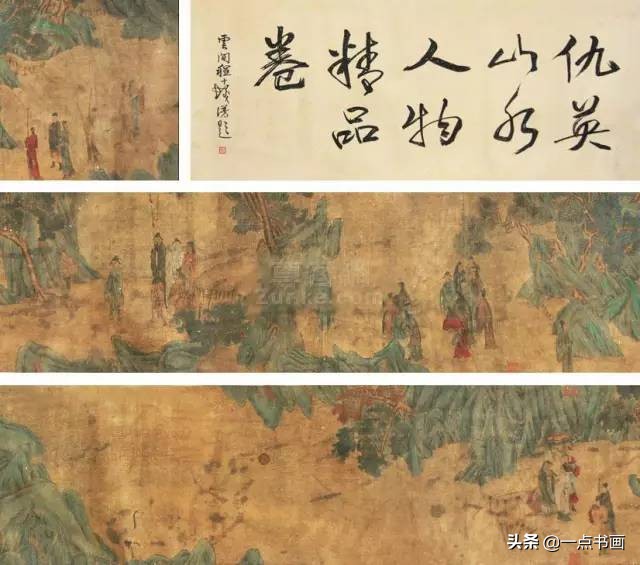 仇英
山水
人物
精品
卷
雲間程十髮漫題
头条 @一点书画